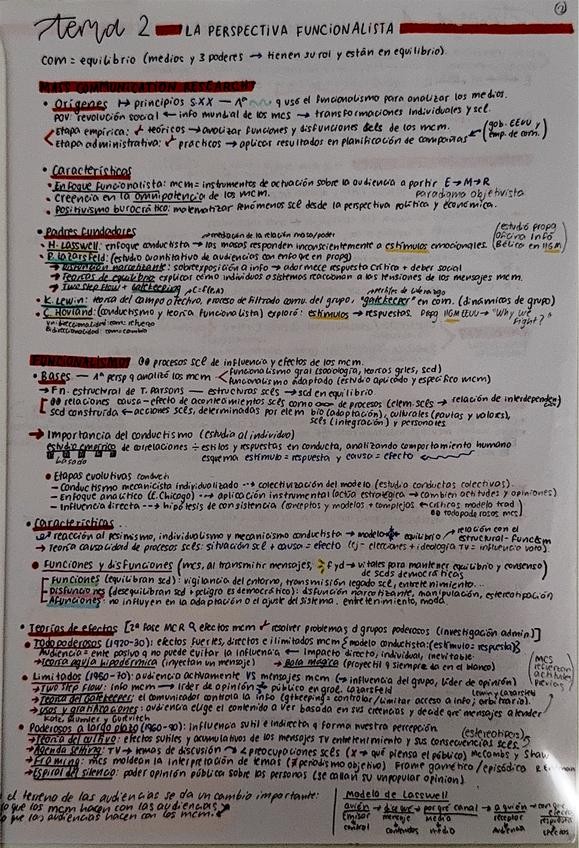 2
tema 2 LA PERSPECTIVA FUNCIONALISTA
com = equilibrio (medios y 3 poderes → tienen su rol y están en equilibrio).
MASS COMMUNICATION RESEARCH
• Orígenes ↦ principios S.XX → 1ª q usó el funcionalismo para analizar los medios.
pov: revolución social ← info mundial de los mcs → transformaciones individuales y scl.
Etapa empírica: teóricos → analizar funciones y disfunciones de los mcm.
Etapa administrativa: prácticos → aplicar resultados en planificación de campañas (gob. EEUU y emp. de com.)
• Características
• Enfoque funcionalista: mcm = instrumentos de actuación sobre la audiencia a partir E→M→R
• Creencia en la omnipotencia de los mcm. Paradigma objetivista
• Positivismo burocrático: matematizar fenómenos scl desde la perspectiva política y económica.
• Padres fundadores
• H. Lasswell: enfoque conductista → las masas responden inconscientemente a estímulos emocionales. (estudió propag Oficina Info Bélica en IIGM)
• P. Lazarsfeld: (estudio cuantitativo de audiencias con enfoque en propag)
→ Disfunción narcotizante: sobreexposición a info → adormece respuesta crítica + deber social
→ Teorías de equilibrio explicar cómo individuos o sistemas reaccionan a las tensiones de los mensajes mcm.
→ Two step flow + Gatekeeping
• K. Lewin: teoría del campo afectivo, proceso de filtrado comu. del grupo, "gatekeeper" en com. (dinámicas de grupo)
• C. Hovland: (conductismo y teoría funcionalista) exploró: estímulos → respuestas. Propag IIGM EEUU → "Why we fight?"
bidireccionalidad: como cambio
FUNCIONALISMO procesos scl de influencia y efectos de los mcm.
• Bases — 1ª persp q analizó los mcm funcionalismo gral (sociología, teorías grles, scd)
funcionalismo adaptado (estudio aplicado y específico mcm)
→ Fn. estructural de T. Parsons — estructuras scls → scd en equilibrio
relaciones causa-efecto de acontecimientos scls como de procesos (elem. scls → relación de interdependencia)
scd construida ← acciones scls, determinadas por elem bio (adaptación), culturales (pautas y valores), scls (integración) y personales
→ Importancia del conductismo (estudia al individuo)
estudio empírico de correlaciones ÷ estilos y respuestas en conducta, analizando comportamiento humano
basado esquema estímulo = respuesta y causa = efecto
• Etapas evolutivas conduct
— Conductismo mecanicista individualizado → colectivización del modelo (estudia conductas colectivas).
— Enfoque analítico (E. Chicago) → aplicación instrumental (actúa estratégica → cambien actitudes y opiniones)
— Influencia directa → hipótesis de con sistencia (conceptos y modelos + complejos ← críticas modelo trad todopoderosos mcs)
• Características
reacción al pesimismo, individualismo y mecanicismo conductista → modelo equilibrio relación con el estructural-funcism
→ Teoría causalidad de procesos scls: situación scl + causa = efecto (ej – elecciones + ideología TV = influencia voto).
• Funciones y disfunciones (mcs, al transmitir mensajes, f y d → vitales para mantener equilibrio y consenso de scds democráticas)
Funciones (equilibran scd): vigilancia del entorno, transmisión legado scl, entretenimiento...
Disfunciones (desequilibran scd + peligro es democrático): disfunción narcotizante, manipulación, estereotipación
Afunciones: no influyen en la adaptación o el ajuste del sistema. entretenimiento, moda
• Teorías de efectos [2ª fase MCR efectos mcm resolver problemas d grupos poderosos (investigación admin)]
• Todopoderosos (1920-30): efectos fuertes, directos e ilimitados mcm modelo conductista: (estímulo = respuesta)
Audiencia: ente pasivo q no puede evitar la influencia ← Impacto directo, individual, inevitable.
→ Teoría aguja hipodérmica (inyectan un mensaje) → Bala mágica (proyectil q siempre da en el blanco)
• Limitados (1960-70): audiencia activamente VS mensajes mcm (→ influencia del grupo, líder de opinión) (MCS refuerzan actitudes previas)
→ Two step flow: info mcm → líder de opinión → público en gral. Lazarsfeld
→ Teoría del gatekeeper: el comunicador controla la info (gatekeeping = controlar/limitar acceso a info; arbitraria). Lewin y Lazarsfeld
→ usos y gratificaciones: audiencia elige el contenido a ver basada en sus creencias y desde que mensajes atender
Katz, Blumler y Gurevitch
• Poderosos a largo plazo (1960-90): influencia sutil e indirecta q forma nuestra percepción. (estereotipos)
→ Teoría del cultivo: efectos sutiles y acumulativos de los mensajes TV entretenimiento y sus consecuencias scls
→ Agenda setting: TV → temas de discusión → preocupaciones scls (x → qué piensa el público) McCombs y Shaw
→ Framing: mcs moldean la interpretación de temas (periodismo objetivo) Frame temático / episódico
→ Espiral del silencio: poder opinión pública sobre las personas (se callan su unpopular opinion)
el terreno de las audiencias se da un cambio importante:
lo que los mcm hacen con las audiencias
lo que las audiencias hacen con los mcm.
Modelo de Lasswell
quién → dice qué → por qué canal → a quién → con qué efecto
Emisor mensaje media receptor respuesta
control contenidos medio Audiencia efectos